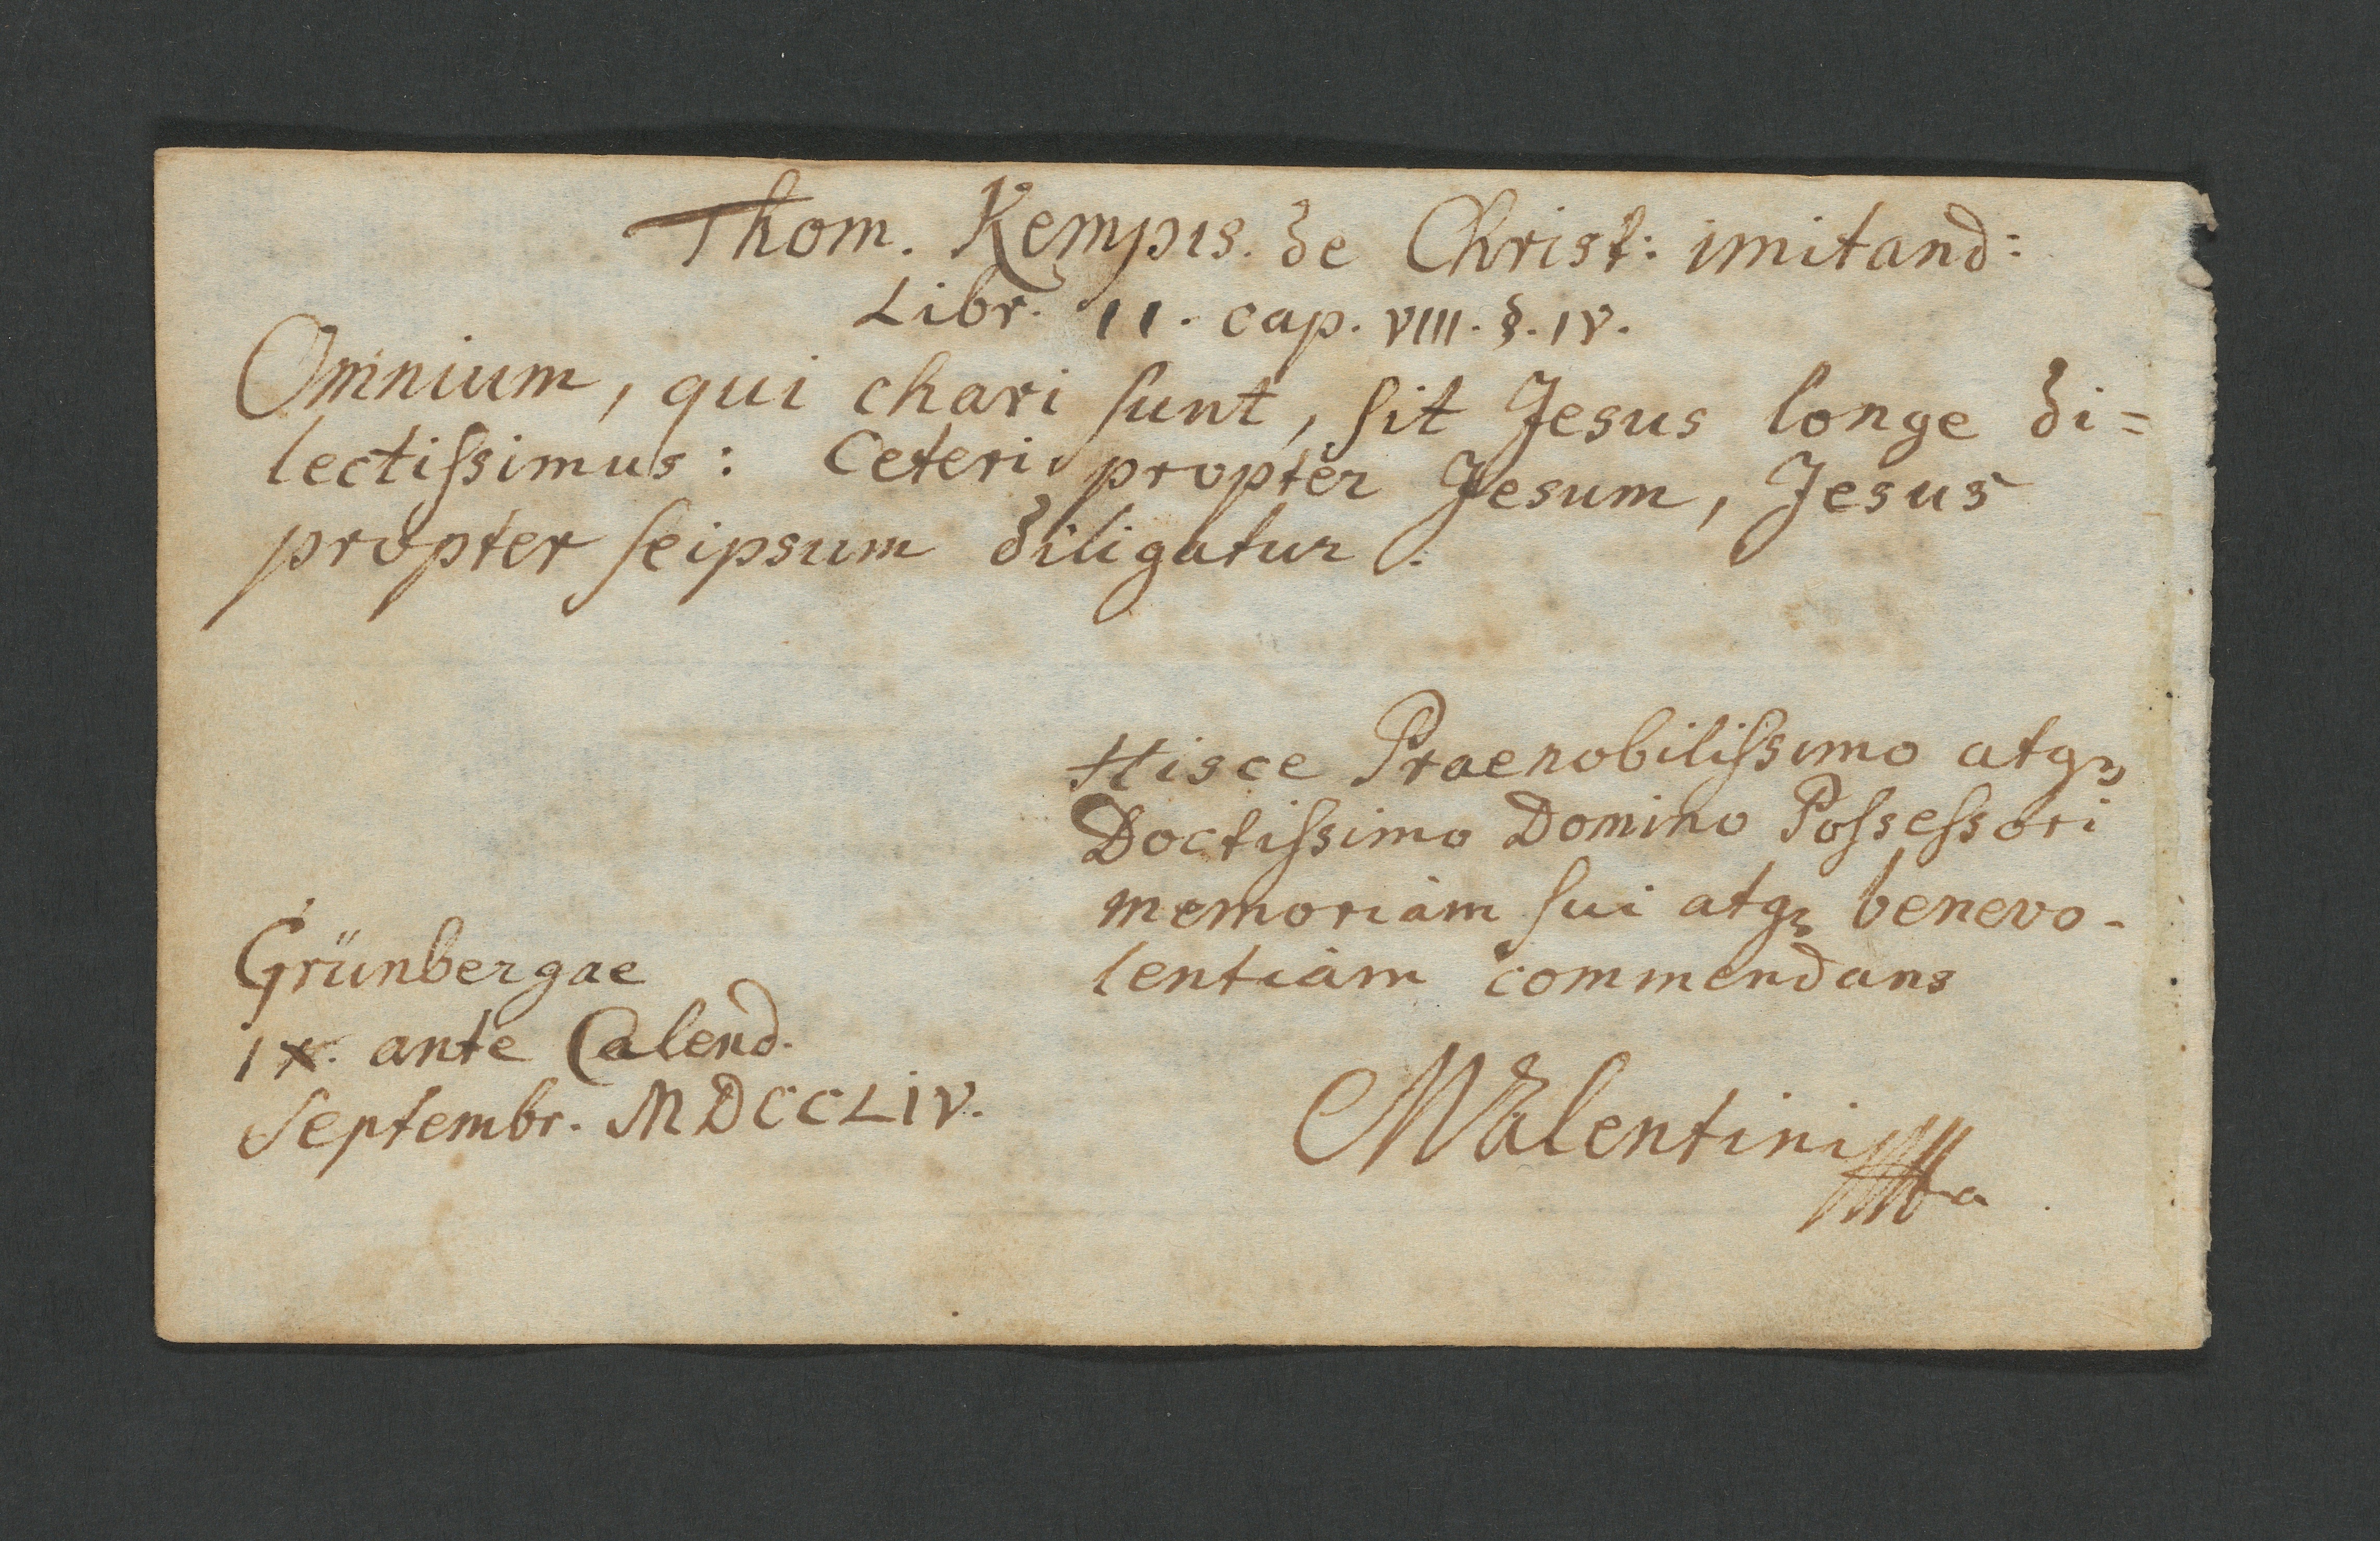 Thom. Kempis. de Christ: imitand:
Libr. II. cap. VIII. §. IV.
Omnium, qui chari sunt, sit Jesus longe di=
lectissimus: Ceteri propter Jesum, Jesus
propter seipsum diligatur.
Hisce Praenobilissimo atq3
Doctissimo Domino Possessori
memoriam sui atq3 benevo-
lentiam commendans
Grünbergae
IX. ante Calend.
Septembr. MDCCLIV.
Valentini